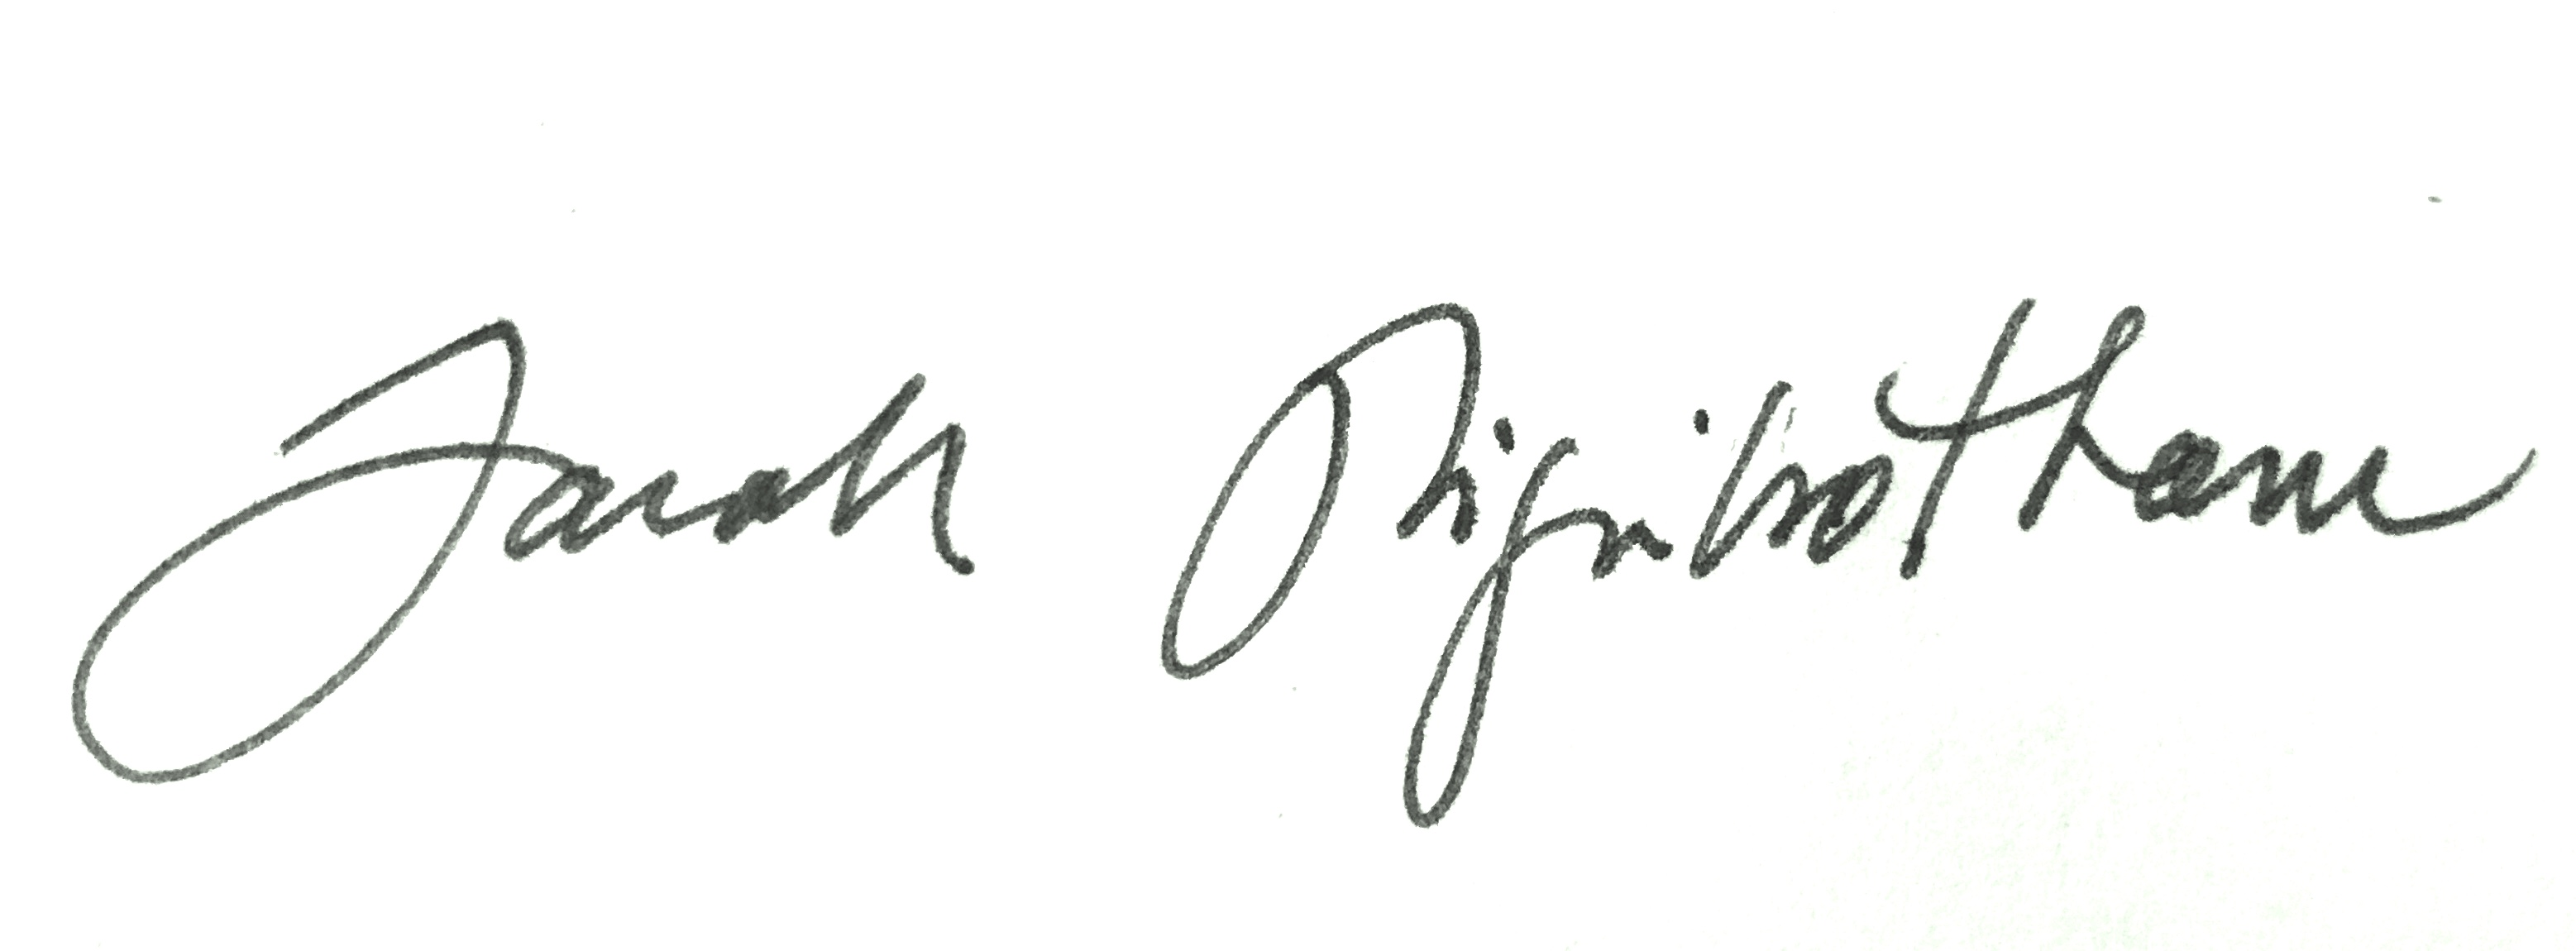 Sarah Higinbotham